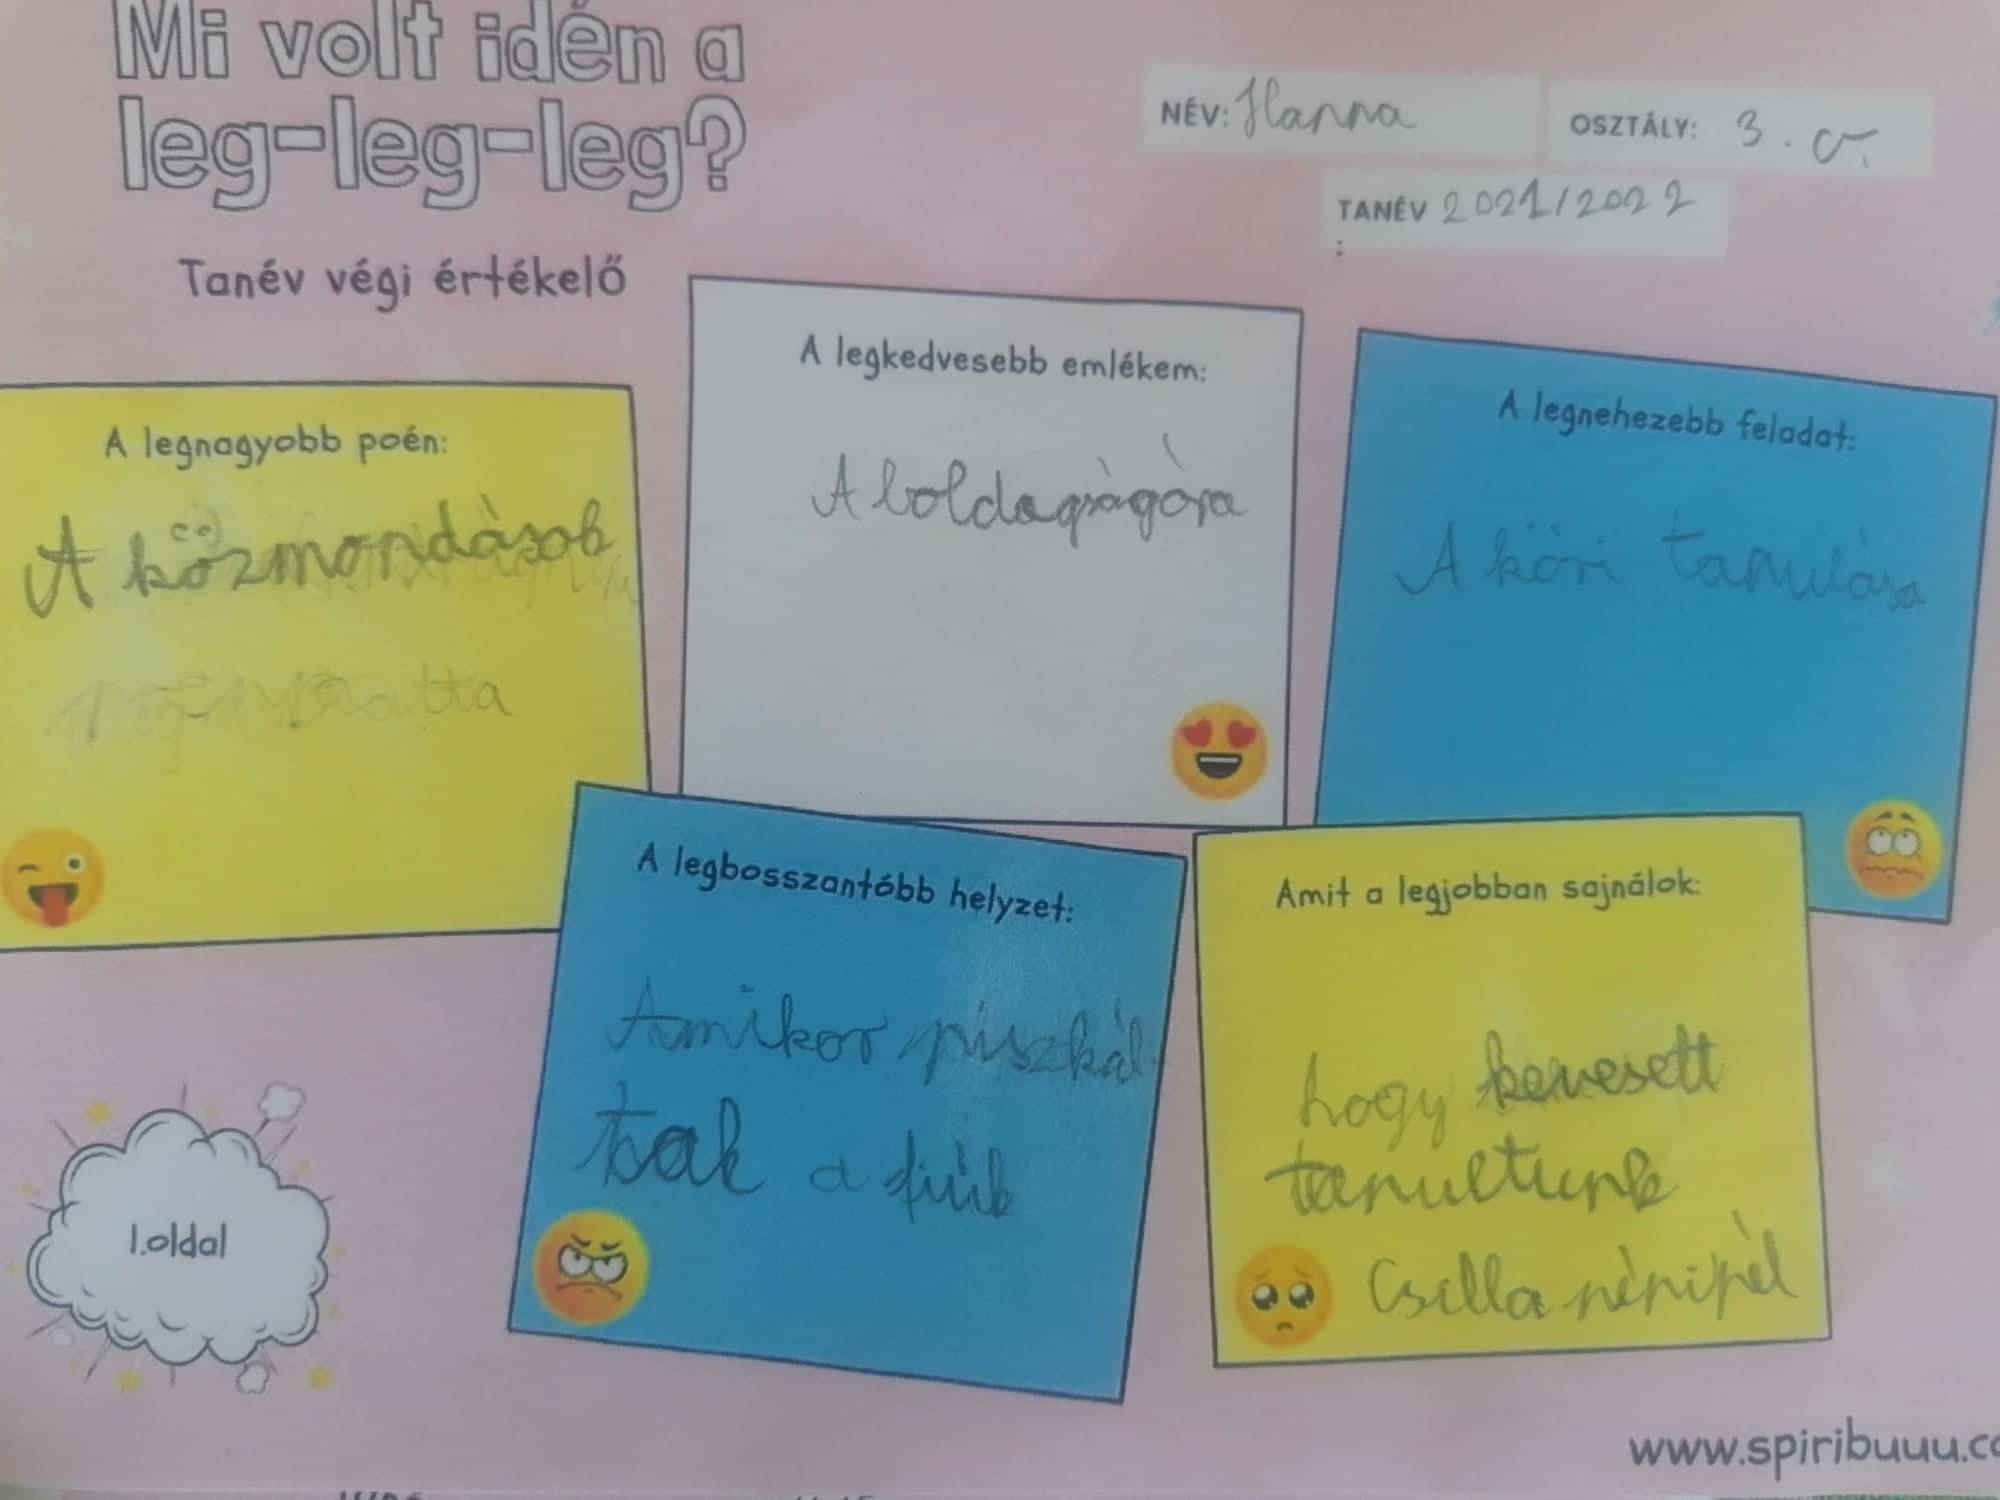 Mi volt idén a
leg-leg-leg?
Tanév végi értékelő
NÉV: Hanna
OSZTÁLY: 3. a.
TANÉV 2021/2022
:
A legnagyobb poén:
A közmondások
A legkedvesebb emlékem:
A boldogságóra
A legnehezebb feladat:
A köri tanulása
A legbosszantóbb helyzet:
Amikor piszkál
tak a fiúk
Amit a legjobban sajnálok:
hogy kevesett
tanultunk
Csilla nénipél
1.oldal
www.spiribuuu.co